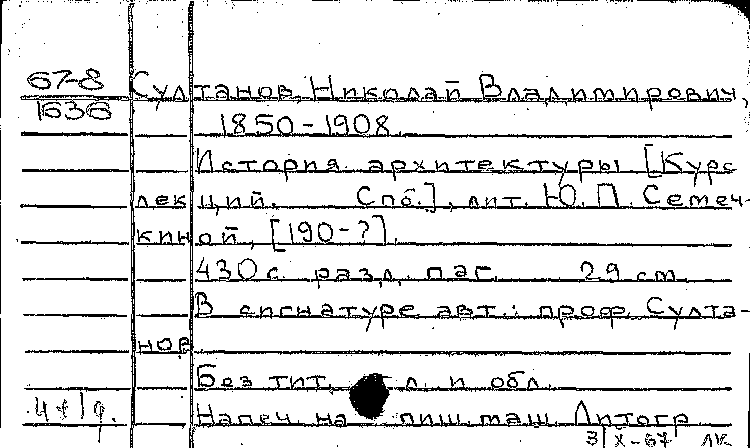 67-8
1636
Султанов, Николай Владимирович,
1850-1908.
История архитектуры [Курс
лекций. Спб.], лит. Ю. П. Семеч-
киной, [190-?].
430 с. разд. паг. 29 см.
В сигнатуре авт.: проф. Султа-
нов.
Без тит. л. и обл.
Напеч. на пиш. маш. Литогр.
3/X-67 ЛК